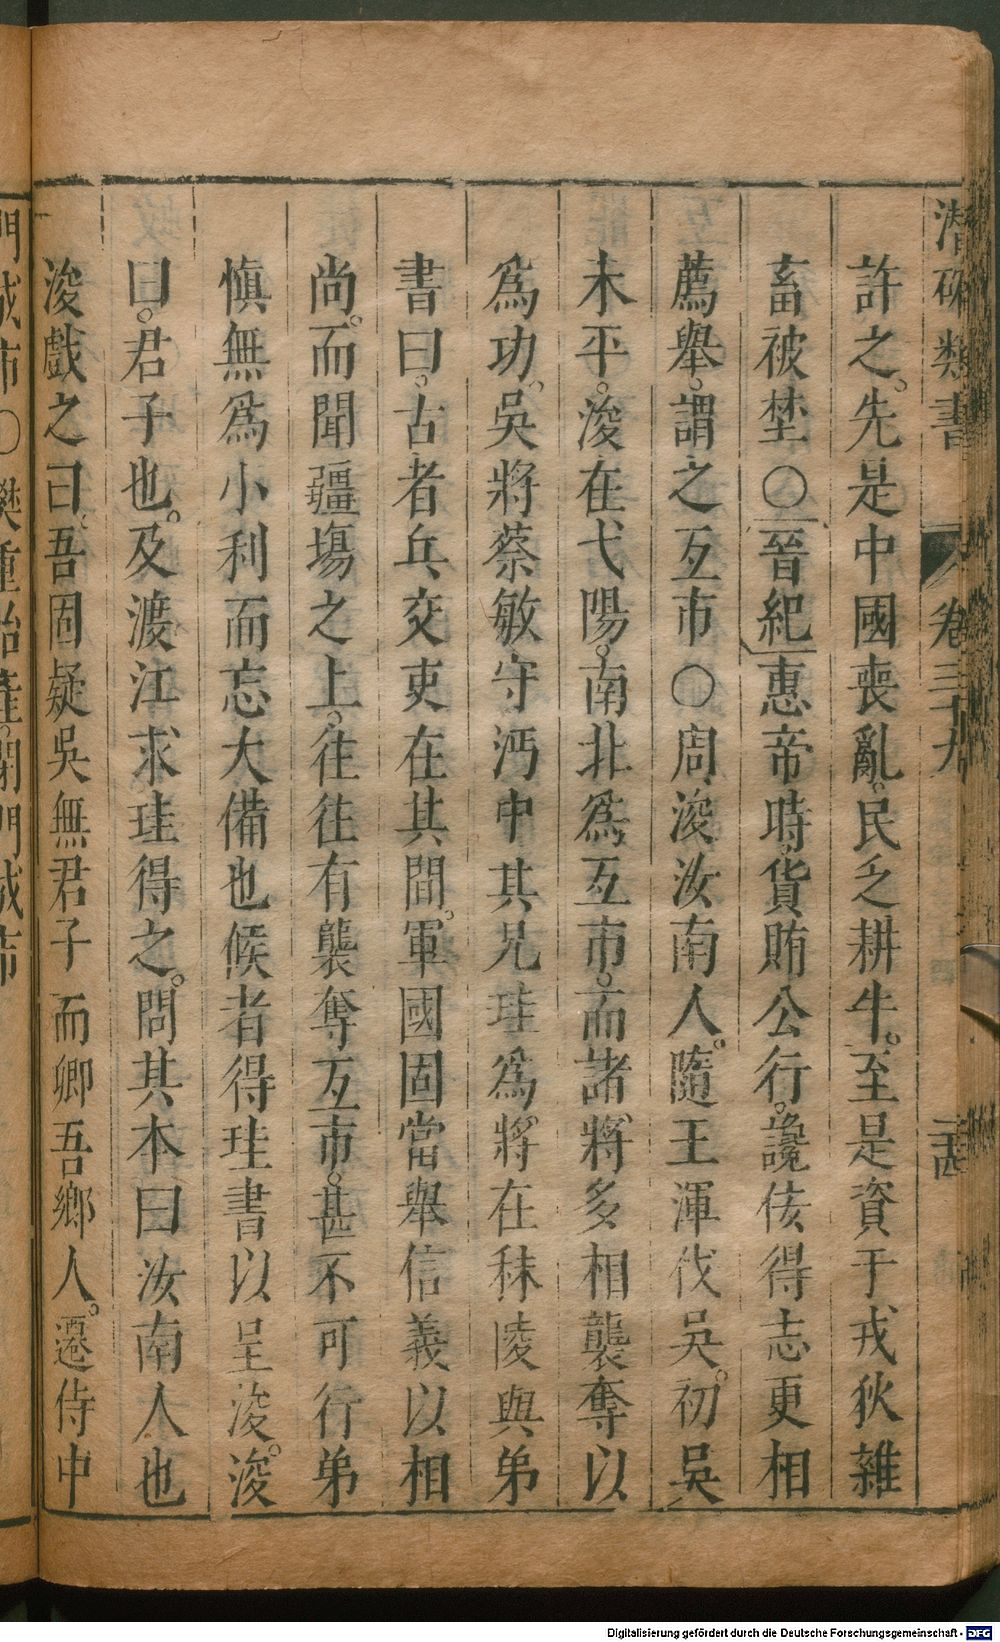 潛確類書 卷三十九 二十四
許之。先是中國喪亂民乏耕牛。至是資于戎狄雜
畜被埜〇晉紀惠帝時貨賄公行。讒佞得志更相
薦舉。謂之互市〇周浚汝南人。隨王渾伐吳。初吳
未平。浚在弋陽。南北爲互市。而諸將多相襲奪以
爲功。吳將蔡敏守沔中其兄珪爲將在秣陵與弟
書曰。古者兵交吏在其間。軍國固當舉信義以相
尚。而聞疆塲之上。往往有襲奪互市。甚不可行弟
慎無爲小利而忘大備也候者得珪書以呈浚。浚
曰。君子也。及渡江求珪得之。問其本曰汝南人也
浚戲之曰。吾固疑吳無君子而卿吾鄉人。遷侍中
門城市〇樊重治產閉門城市
Digitalisierung gefördert durch die Deutsche Forschungsgemeinschaft - DFG